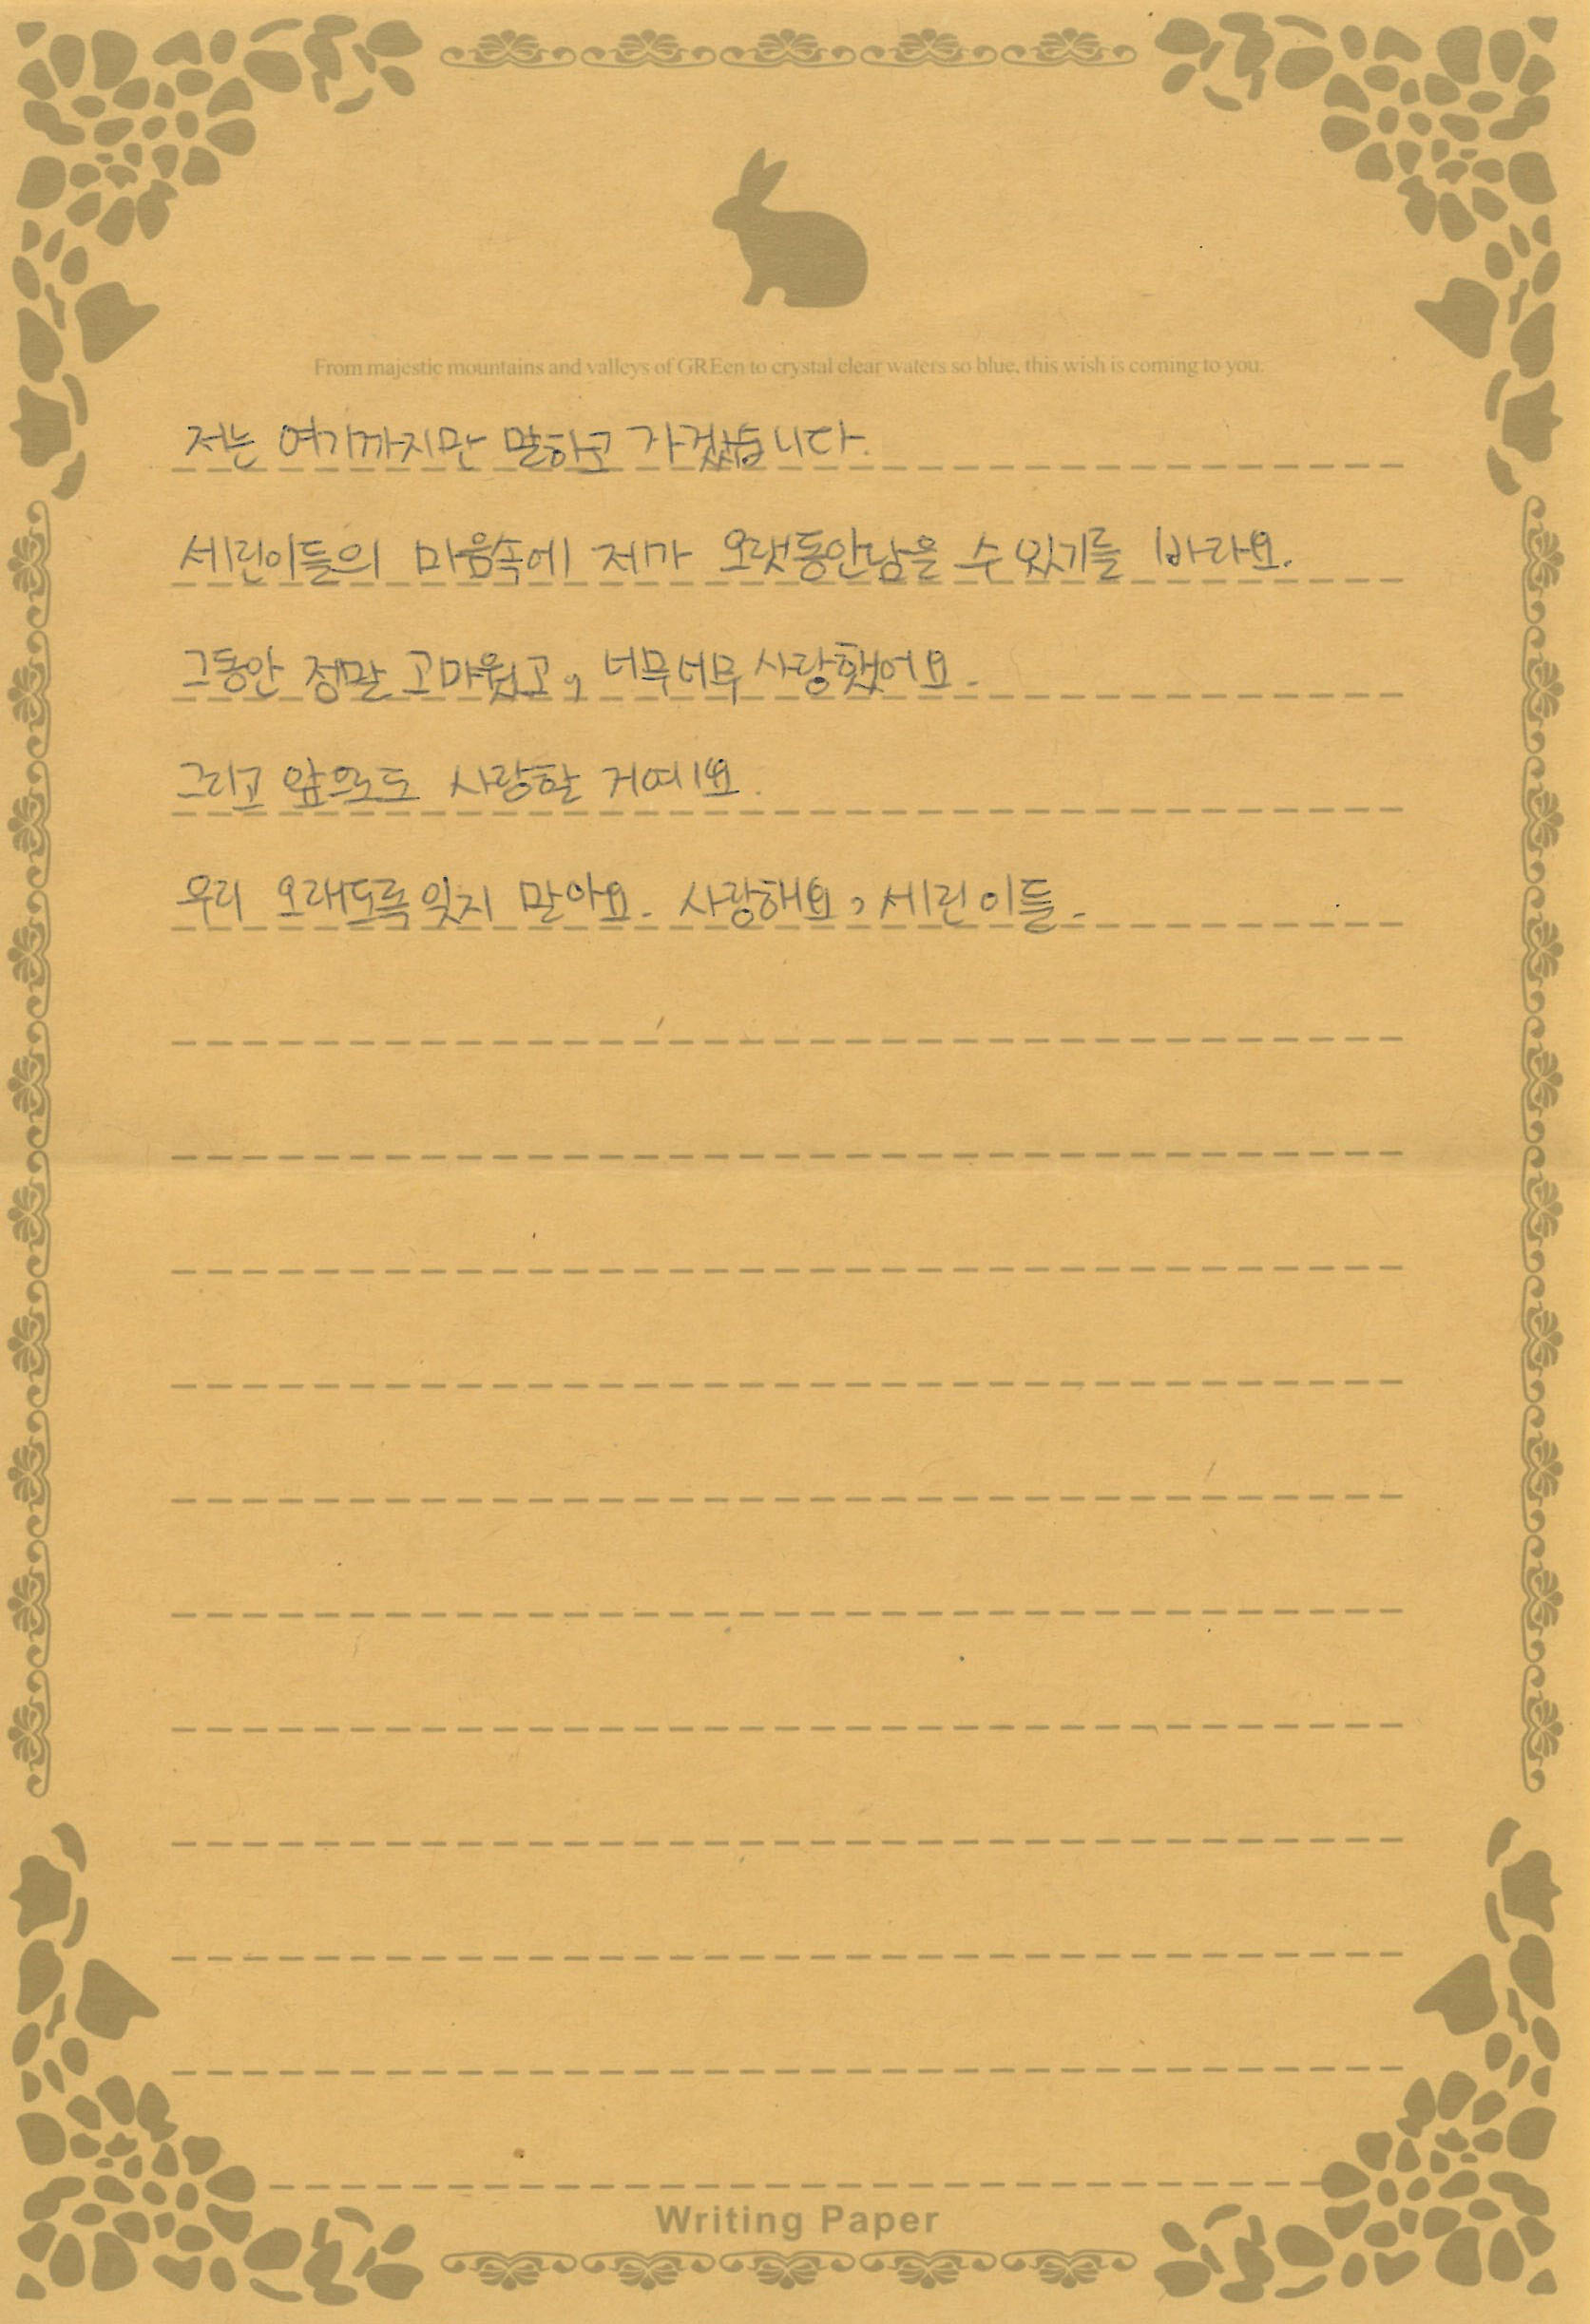 From majestic mountains and valleys of GREen to crystal clear waters so blue, this wish is coming to you.
저는 여기까지만 말하고 가겠습니다.
세린이들의 마음속에 제가 오랫동안남을 수 있기를 바라요.
그동안 정말 고마웠고, 너무너무 사랑했어요.
그리고 앞으로도 사랑할 거예요.
우리 오래도록 잊지 말아요. 사랑해요, 세린이들.
Writing Paper